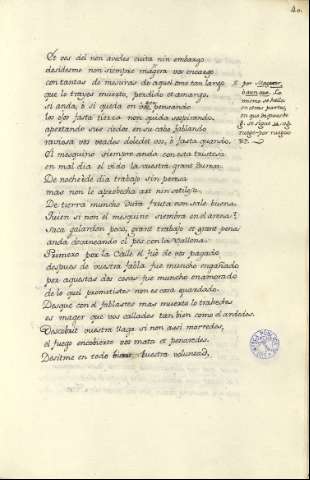 40.
Et vos del non avedes cuita nin embargo
desidesme non siempre magera vos encargo
con tantas de mesuras de aquel ome tan largo
que lo trayes muerto, perdido et amargo,
si anda, o si queda en vos pensando
los ojos fasta tierra non queda sospirando,
apretando sus dedos en su cabo fablando
raviosa vos veades doledet vos, ó fasta quando.
El mesquino siempre anda con esta tristesa
en mal dia el vido la vuestra grant duresa.
De noche é de dia trabajo sin peresa
mas non le aprobecha art nin sotilesa.
De tierra muncho dura fruta non sale buena,
Quien si non el mesquino siembra en el arena?
Saca galardon poco, grant trabajo et grant pena,
anda devaneando el pes con la vallena.
Primero por la talle el fué de vos pagado
despues de vuestra fabla fue muncho engañado
por aquestas dos cosas fue muncho enamorado
de lo quel prometistes non es cosa guardado.
Desque con él fablastes mas muerto lo trahedes
es mager que vos callades tan bien como el ardedes.
Descobrit vuestra llaga si non ansi morredes,
el fuego encobierto vos mata et penaredes.
Desitme en todo vuestra voluntad,